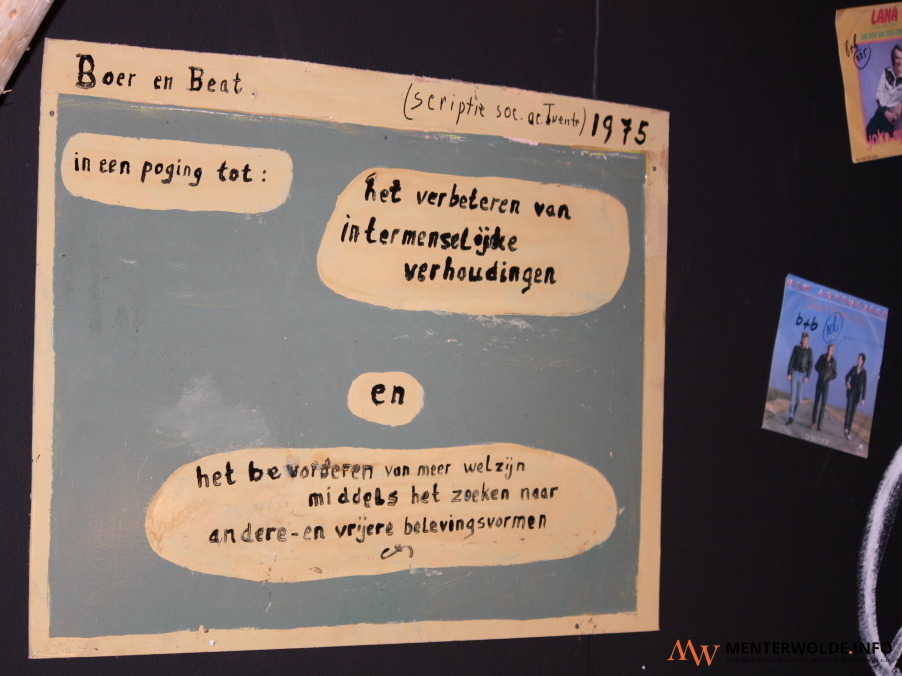 Boer en Beat.
(scriptie soc. ac. Twente) 1975
in een poging tot:
het verbeteren van
intermenselijke
verhoudingen
en
het bevorderen van meer welzijn
middels het zoeken naar
andere-en vrijere belevingsvormen
LANA
b+b
MW MENTERWOLDE.INFO